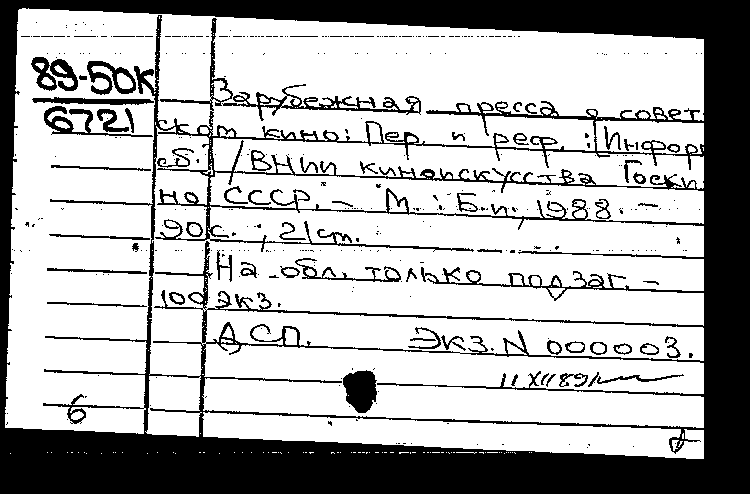 89-50К
6721
Зарубежная пресса о совет-
ском кино: Пер. и реф. : [Информ
сб.] / ВНИИ киноискусства Госки
но СССР. – М. : Б.и., 1988. –
90 с. ; 21 ст.
На обл. только подзаг. –
100 экз.
ДСП. Экз. N 000003.
11 XII 89
6